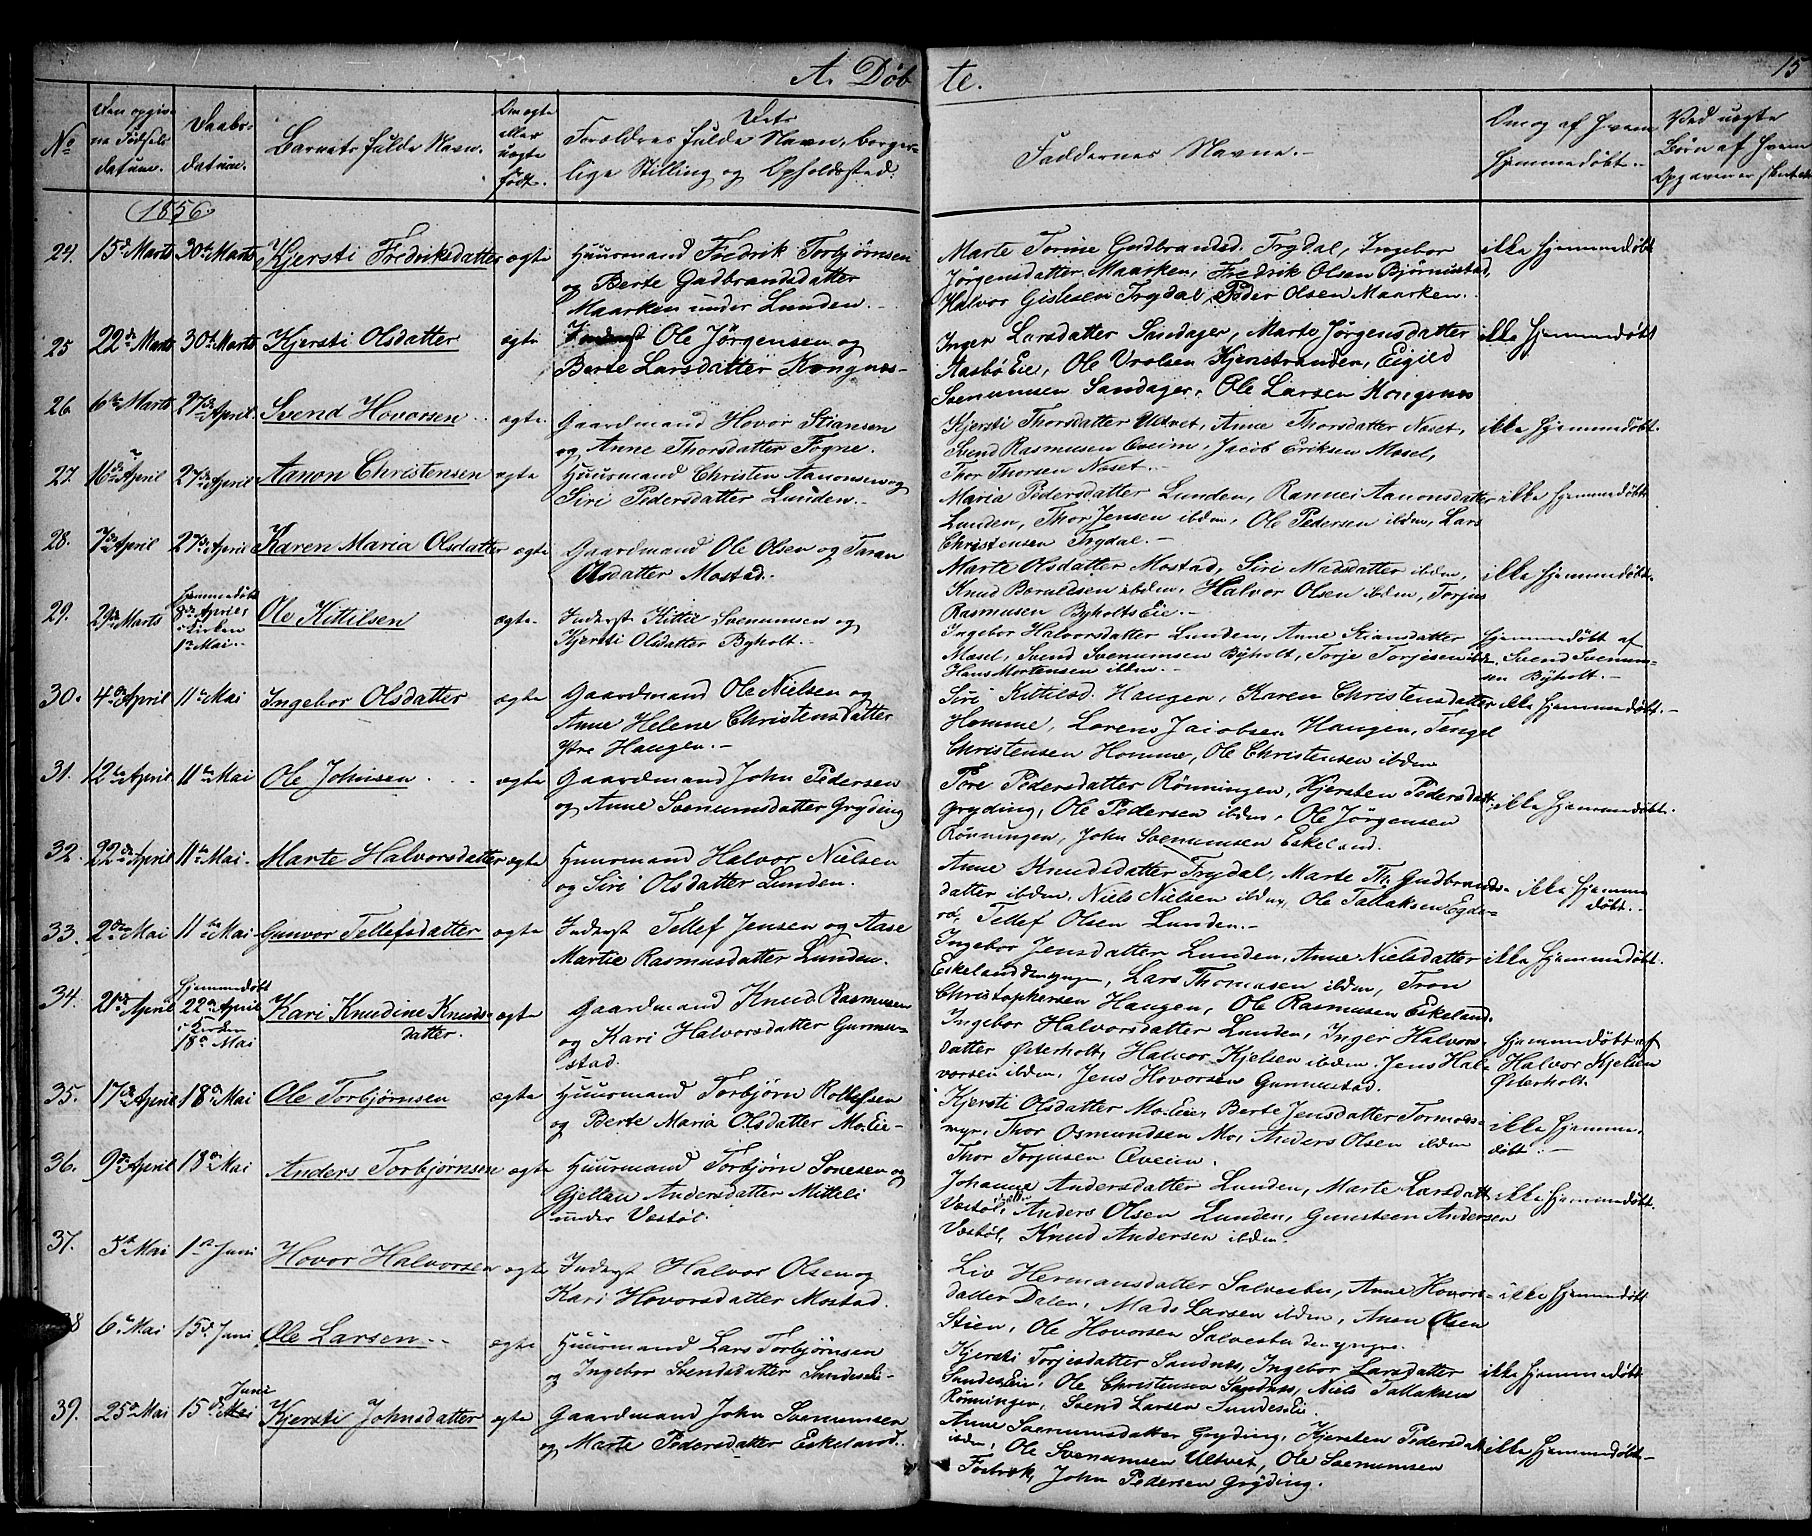 A. Døbte.
15
No
Den opgivne Fødselsdatum.
Daabsdatum.
Barnets fulde Navn.
Om ægte eller uægte født.
Dets Forældres fulde Navn, borgerlige Stilling og Opholdssted.
Faddernes Navne.
Om og af hvem hjemmedøbt.
Ved uægte Børn af hvem Opgaven er skeet
1856.
24. 15de Marts 30te Marts Kjersti Fredriksdatter ægte
Huusmand Fredrik Torbjørnsen
og Berte Gudbrandsdatter
Maarken under Lunden.
Marte Torine Gudbrandsd. Trydal, Ingebor
Jørgensdatter Maarken, Fredrik Olsen Bjørnestad,
Halvor Gislesen Trydal, Peder Olsen Maarken.
ikke hjemmedøbt
25 22de Marts 30te Marts Kjersti Olsdatter ægte
Inderst Ole Jørgensen og
Berte Larsdatter Kongnæs
Inger Larsdatter Sandager, Marte Jørgensdatter
Aasbø Eie, Ole Vrolsen Kjenstranden, Eigild
Svenumsen Sandager, Ole Larsen Kongnæs
ikke hjemmedøbt
26. 6te Marts 27de April Svend Hovorsen ægte
Gaardmand Hovor Stiansen
og Anne Thorsdatter Fogne.
Kjersti Thorsdatter Ultvet, Anne Thorsdatter Naset,
Svend Rasmusen Aveim, Jacob Eriksen Mosel,
Thor Thorsen Naset.
ikke hjemmedøbt.
27. 16de April 27de April Aanon Christensen ægte
Huusmand Christen Aanonsen og
Siri Pedersdatter Lunden.
Maria Pedersdatter Lunden, Rannei Aanonsdatter
Lunden, Thor Jensen ibdm, Ole Pedersen ibdem, Lars
Christensen Trydal.
ikke hjemmedøbt
28. 7de April 27de April Karen Maria Olsdatter ægte
Gaardmand Ole Olsen og Taran
Olsdatter Mostad.
Marte Olsdatter Mostad, Siri Madsdatter ibdm,
Knud ibdem, Halvor Olsen ibdem, Torjus
Rasmusen Byholts Eie.
ikke hjemmedøbt.
29. 29de Marts
Hjemmedøbt
8de April,
i Kirken
1te Mai
Ole Kittilsen ægte
Inderst Kittil Svenumsen og
Kjersti Olsdatter Byholt.
Ingebor Halvorsdatter Lunden, Anne Stiansdatter
Mosel, Svend Svenumsen Byholt, Torje Torjesen ibdm,
Hans Mortensen ibdem.
Hjemmedøbt af
Svend Svenum-
sen Byholt.
30. 4de April 11te Mai Ingebor Olsdatter ægte
Gaardmand Ole Nielsen og
Anne Helene Christensdatter
Ytre Haugen.
Siri Kittilsd. Haugen, Karen Christensdatter
Homme, Lorens Jacobsen Haugen, Tengel
Christensen Homme, Ole Christensen ibdem
ikke hjemmedøbt.
31. 12te April 11te Mai Ole Johnsen ægte
Gaardmand John Pedersen
og Anne Svenumsdatter Gryding
Tore Pedersdatter Rønningen, Kjersten Pedersdatt.
Gryding, Ole Pedersen ibdem, Ole Jørgensen
Rønningen, John Svenumsen Eskeland.
ikke hjemmedøbt.
32. 22de April 11te Mai Marte Halvorsdatter ægte
Huusmand Halvor Nielsen
og Siri Olsdatter Lunden.
Anne Knudsdatter Trydal, Marte Th. Gudbrands-
datter ibdem, Niels Nielsen ibdem, Ole Tallaksen Egde-
rø, Tellef Olsen Lunden.
ikke hjemme
døbt.
33. 2den Mai 11te Mai Gunvor Tellefsdatter ægte
Inderst Tellef Jensen og Aase
Martie Rasmusdatter Lunden.
Ingebor Jensdatter Lunden, Anne Nielsdatter
Eskeland den yngre, Lars Thomasen ibdem, Tron
Christophersen Haugen, Ole Rasmusen Eskeland.
ikke hjemmedøbt.
34. 21de April
Hjemmedøbt
22de April
i Kirken
18de Mai
Kari Knudine Knuds-
datter. ægte
Gaardmand Knud Rasmusen
og Kari Halvorsdatter Gunmu-
stad.
Ingebor Halvorsdatter Lunden, Inger Halvors-
datter Østerholt, Halvor Kjelsen ibdem, Jens Hal-
vorsen ibdem, Jens Hovorsen Gunmustad.
Hjemmedøbt af
Halvor Kjelsen
Østerholt.
35. 17de April 18de Mai Ole Torbjørnsen ægte
Huusmand Torbjørn Rollefsen
og Berte Maria Olsdatter Mo Eie
Kjersti Olsdatter Mo Eie, Berte Jensdatter Tormods-
myr, Thor Osmundsen Mo, Anders Olsen ibdem
Thor Torjusen Aveim.
ikke hjemme-
døbt.
36. 9de April 18de Mai Anders Torbjørnsen ægte
Huusmand Torbjørn Sonesen og
Gjellau Andersdatter Mitteli
under Væstøl.
Johanne Andersdatter Lunden, Marte Larsdatt.
Væstøl, Anders Olsen Lunden, Gunsteen Andersen
Væstøl, Knud Andersen ibdem.
ikke hjemmedøbt.
37. 5te Mai 1ste Juni Hovor Halvorsen ægte
Inderst Halvor Olsen og
Kari Hovorsdatter Mostad.
Liv Hermansdatter Salvesbu, Anne Hovors-
datter Dalen, Mads Larsen ibdem, Anon Olsen
Stien, Ole Hovorsen Salvesbu den yngre.
ikke hjemmedøbt
38 6te Mai 15de Juni Ole Larsen ægte
Huusmand Lars Torbjørnsen
og Ingebor Svendsdatter Sundes Ei
Kjersti Torjesdatter Sandnæs, Ingebor Larsdatter
Sundes Eie, Ole Christensen Sandnæs, Niels Tallaksen
Rønningen, Svend Larsen Sundes Eie.
ikke hjemmedøbt.
39. 25de Mai 15de Juni Mai Kjersti Johnsdatter ægte
Gaardmand John Svenumsen
og Marte Pedersdatter Eskeland.
Anne Svenumsdatter Gryding, Kjersten Pedersdatt
ibdm, Ole Svenumsen Ultvet, Ole Svenumsen
Fostvok, John Pedersen Gryding.
ikke hjemmedøbt.